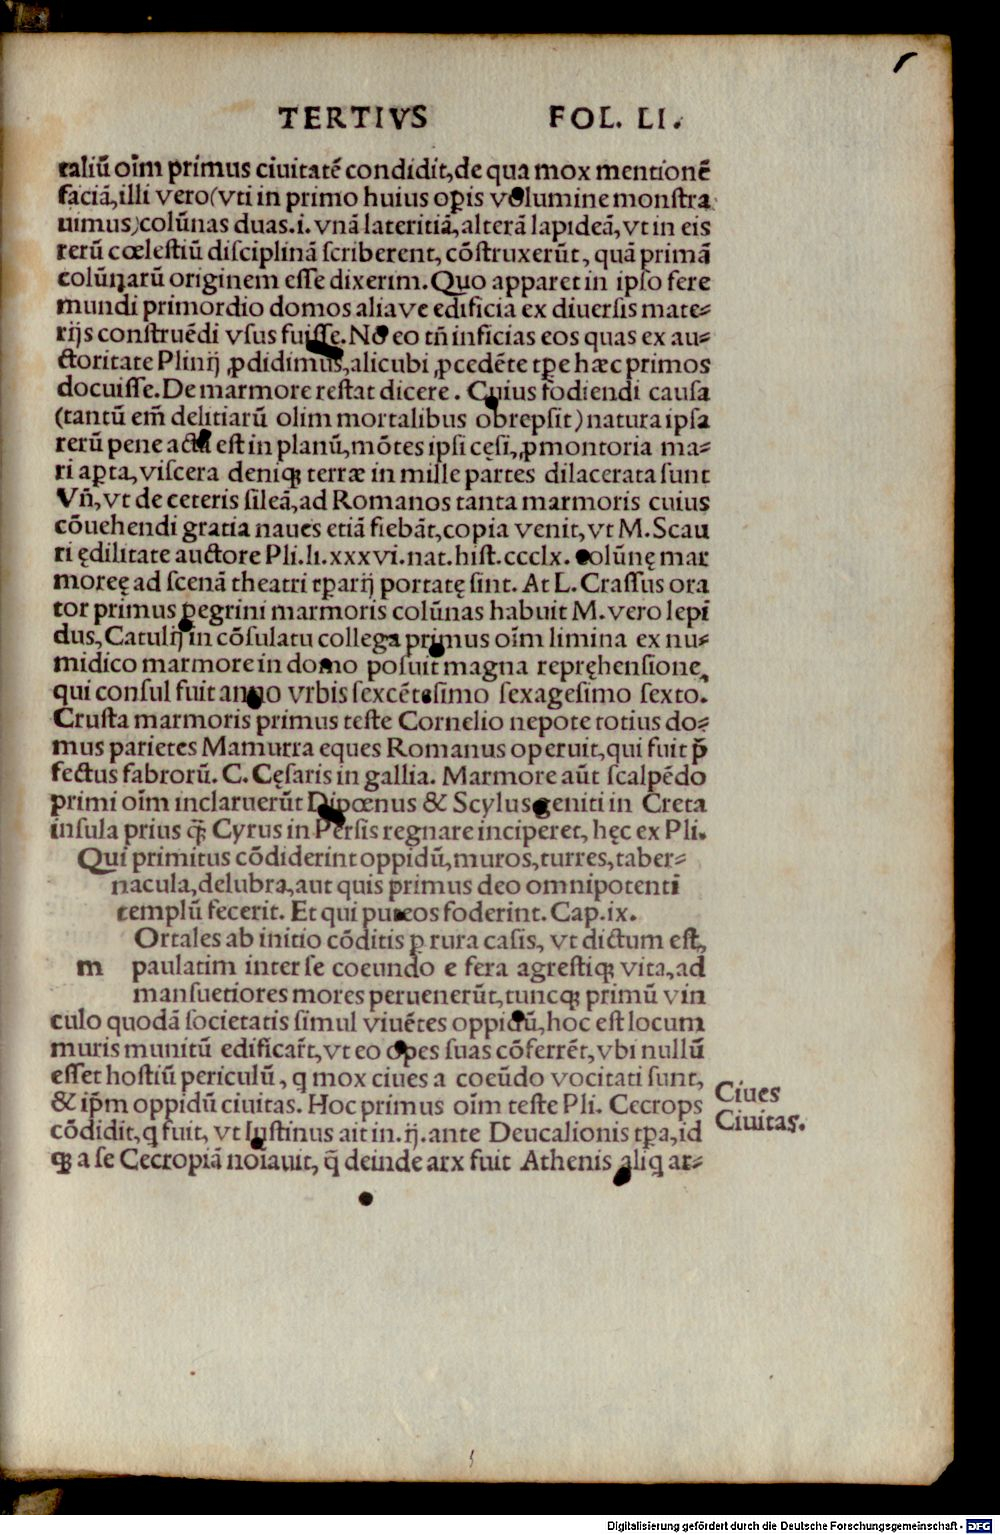 TERTIVS FOL. LI.
taliū oīm primus ciuitatē condidit, de qua mox mentionē
faciā, illi vero (vti in primo huius oꝑis volumine monstra
uimus) colūnas duas .i. vnā lateritiā, alterā lapideā, vt in eis
rerū cœlestiū disciplinā scriberent, cōstruxerūt, quā primā
colūnarū originem esse dixerim. Quo apparet in ipso fere
mundi primordio domos alia ve edificia ex diuersis mate-
rijs construēdi vsus fuisse. Nō eo tn̄ inficias eos quas ex au-
ctoritate Plinij ꝓdidimus, alicubi ꝓcedēte tꝑe hæc primos
docuisse. De marmore restat dicere. Cuius fodiendi causa
(tantū em̄ delitiarū olim mortalibus obrepsit) natura ipsa
rerū pene acta est in planū, mōtes ipsi cęsi, ꝓmontoria ma-
ri aꝑta, viscera deniqꝫ terræ in mille partes dilacerata sunt
Vn̄, vt de ceteris sileā, ad Romanos tanta marmoris cuius
cōuehendi gratia naues etiā fiebāt, copia venit, vt M. Scau
ri ędilitate auctore Pli. li. xxxvi. nat. hist. ccclx. colūnę mar
moreę ad scenā theatri tꝑarij portatę sint. At L. Crassus ora
tor primus ꝑegrini marmoris colūnas habuit M. vero lepi
dus, Catulij in cōsulatu collega primus oīm limina ex nu-
midico marmore in domo posuit magna repręhensione,
qui consul fuit anno vrbis sexcētesimo sexagesimo sexto.
Crusta marmoris primus teste Cornelio nepote totius do-
mus parietes Mamurra eques Romanus operuit, qui fuit p̄
fectus fabrorū. C. Cęsaris in gallia. Marmore aūt scalpēdo
primi oīm inclaruerūt Dipœnus & Scylus geniti in Creta
insula prius q̄ꝫ Cyrus in Persis regnare inciperet, hęc ex Pli.
Qui primitus cōdiderint oppidū, muros, turres, taber-
nacula, delubra, aut quis primus deo omnipotenti
templū fecerit. Et qui puteos foderint. Cap. ix.
Ortales ab initio cōditis ꝑ rura casis, vt dictum est,
m paulatim inter se coeundo e fera agrestiqꝫ vita, ad
mansuetiores mores peruenerūt, tuncqꝫ primū vin
culo quodā societatis simul viuētes oppidū, hoc est locum
muris munitū edificar̄t, vt eo opes suas cōferrēt, vbi nullū
esset hostiū periculū, q mox ciues a coeūdo vocitati sunt,
& ip̄m oppidū ciuitas. Hoc primus oīm teste Pli. Cecrops
cōdidit, q fuit, vt Iustinus ait in .ij. ante Deucalionis tꝑa, id
qꝫ a se Cecropiā noīauit, q̄ deinde arx fuit Athenis aliq ar-
Ciues
Ciuitas.
Digitalisierung gefördert durch die Deutsche Forschungsgemeinschaft - DFG